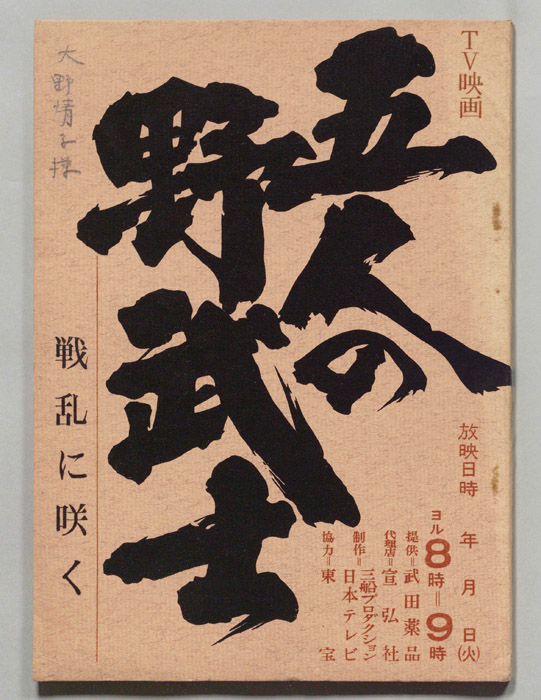 TV映画
五人の
野武士
戦乱に咲く
大野情子様
放映日時　年　月　日(火)
ヨル8時=9時
提供=武田薬品
代理店=宣弘社
制作=三船プロダクション
日本テレビ
協力=東宝